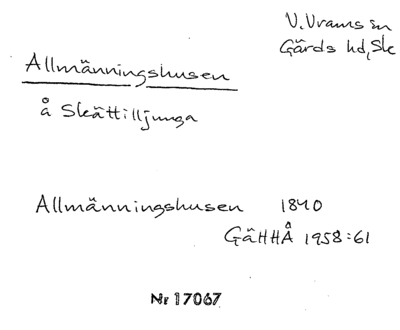 V. Vrams sn
Gärds hd, Sk
Allmänningshusen
å Skättilljunga
Allmänningshusen 1840
GäHHÅ 1958:61
Nr 17067